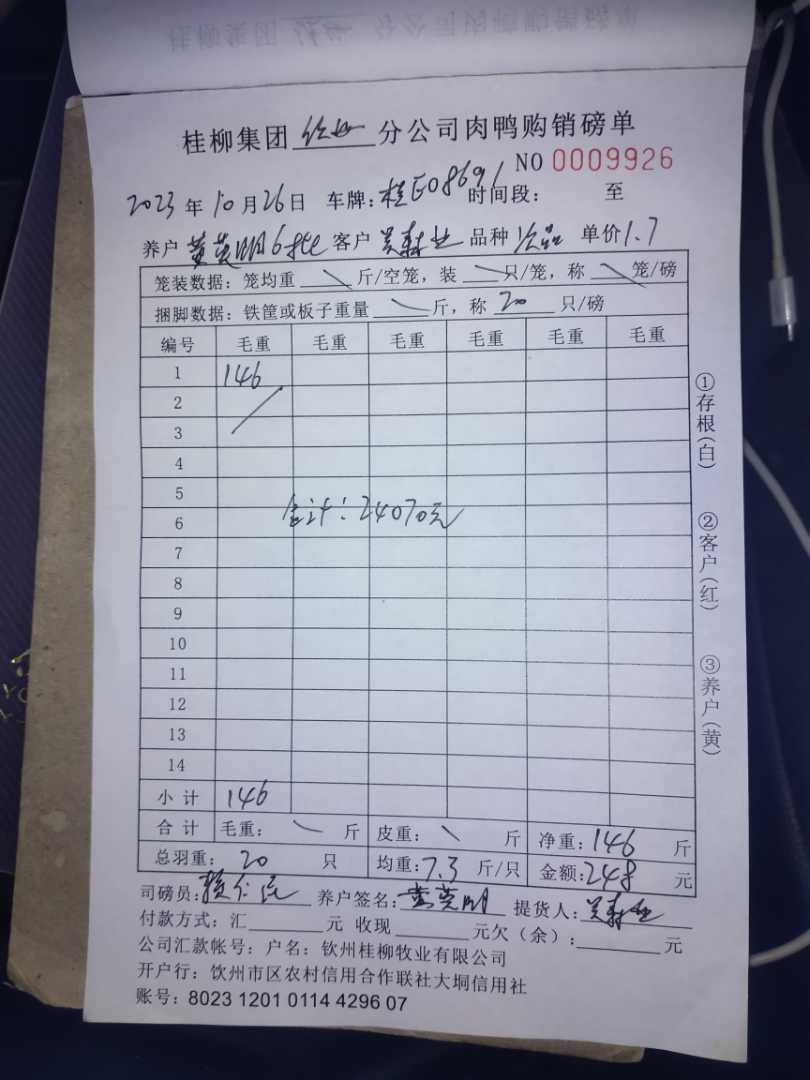 桂柳集团 分公司肉鸭购销磅单
NO 0009926
2023年10月26日 车牌:桂E08691 时间段: 至
养户 黄英明6批 客户 吴赫业 品种 次品 单价1.7
笼装数据:笼均重 斤/空笼,装 只/笼,称 笼/磅
捆脚数据:铁筐或板子重量 斤,称 20 只/磅
编号 毛重 毛重 毛重 毛重 毛重 毛重
1 146
2
3
4
5
合计:24070元
6
7
8
9
10
11
12
13
14
小计 146
合计 毛重: 斤 皮重: 斤 净重:146 斤
总羽重: 20 只 均重:7.3 斤/只 金额:248 元
司磅员: 养户签名:黄英明 提货人:
付款方式:汇 元 收现 元欠(余): 元
公司汇款帐号:户名:钦州桂柳牧业有限公司
开户行:饮州市区农村信用合作联社大垌信用社
账号:8023 1201 0114 4296 07
①存根(白) ②客户(红) ③养户(黄)